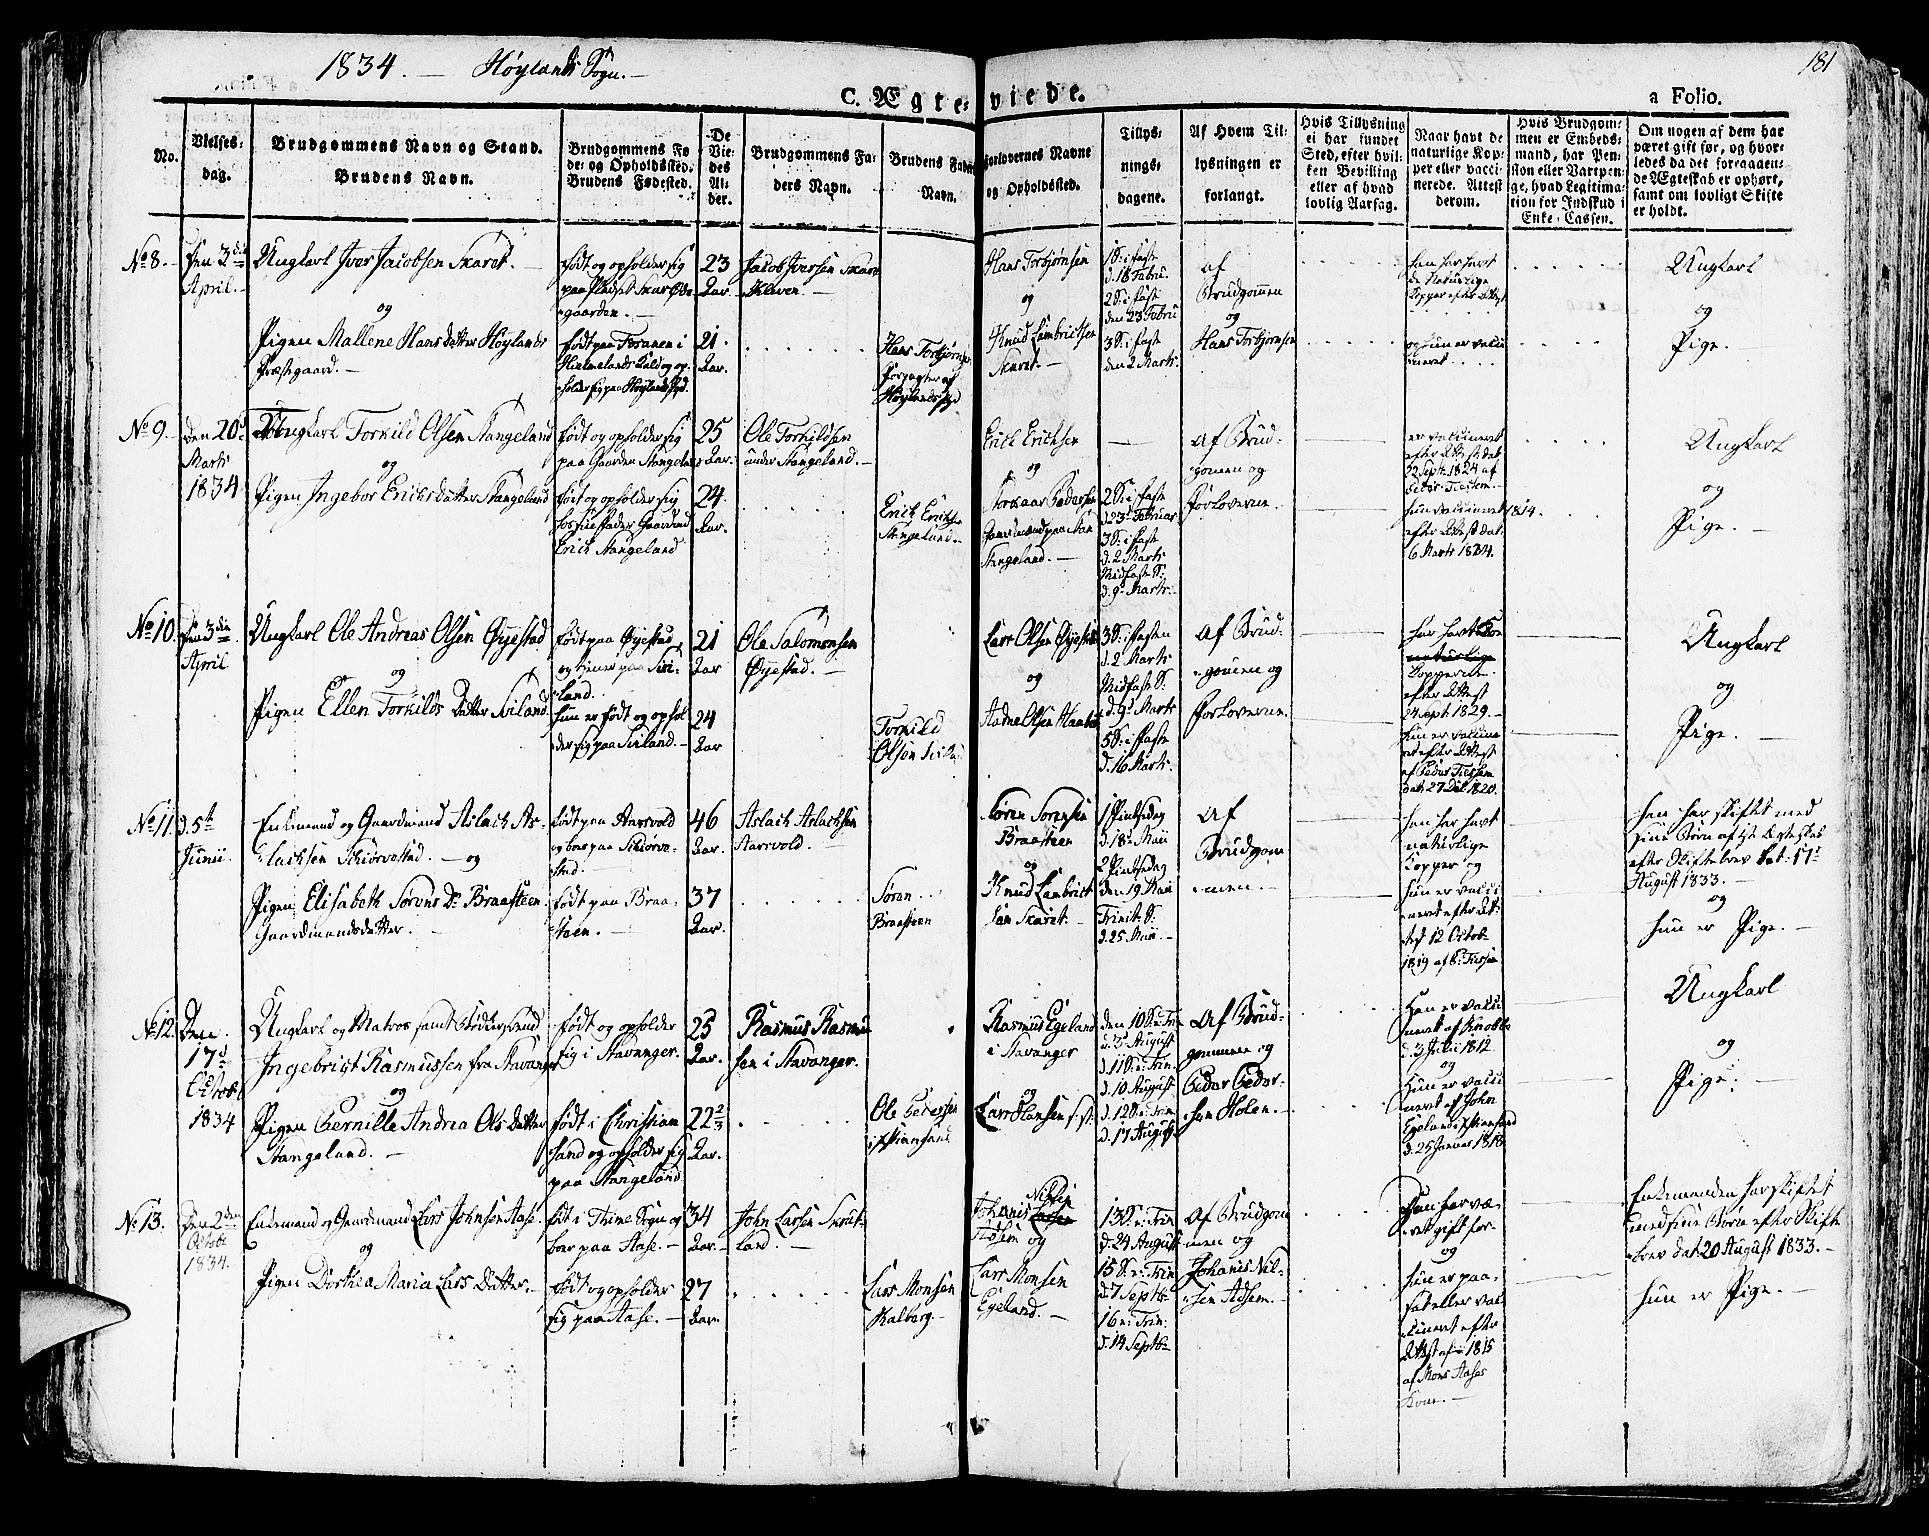 1834. — Høylands Sogn. —
181
C. Ægte-viede.
a Folio.
No.
Vielses-
dag.
Brudgommens Navn og Stand.
Brudens Navn.
Brudgommens Fø
de- og Opholdssted.
Brudens Fødested.
De
Vie-
des
Al-
der.
Brudgommens Fa-
ders Navn.
Brudens Faders
Navn.
Forlovernes Navne
og Opholdssted.
Tillys-
nings-
dagene.
Af Hvem Til-
lysningen er
forlangt.
Hvis Tillysning
ei har fundet
Sted, efter hvil-
ken Bevilling
eller af hvad
lovlig Aarsag.
Naar havt de
naturlige Kop-
per eller vacci-
nerede. Attest
derom.
Hvis Brudgom-
men er Embeds-
mand, har Pen-
sion eller Vartpen-
ge, hvad Legitima-
tion for Indskud i
Enke-Cassen.
Om nogen af dem har
været gift før, og hvor-
ledes da det foregaaen-
de Ægteskab er ophørt,
samt om lovligt Skifte
er holdt.
No 8.
Den 3die
April.
Ungkarl Iver Jacobsen Skaret. —
og
Pigen Mallene Hansdatter Høylands
Præstegaard. —
født og opholder sig
paa Pladset Skaret
gaarden. —
født paa Foranen i
Hielmelands Kald og op-
holder sig paa Høylands
23
Aar.
21
Aar.
Jacob Iversen Skaret
Kleven. —
Hans Torbjørns.
Forpagter af
Høylands
Hans Torbjørnsen
og
Knud Lambrictsen
Skaret. —
1 S: i faste
d. 18 Febru.
2 S: i faste
den 23 Febru
3 S: i faste
den 2 Marts.
af
Brudgommen
og
Hans Torbjørnsen
han har havt
de Naturlige
Kopper efter Attest
og hun er vacci
neret. . . .
Ungkarl
og
Pige. —
No 9.
den 20d
Marts
1834
Ungkarl Torkild Olsen Stangeland
og
Pigen Ingebor Ericksdatter Stangeland
født og opholder sig
paa Gaarden Stangeland
født og opholder sig
hos sin fader Gaardmd
Erick Stangeland
25
Aar.
24.
Aar.
Ole Torkildsen
under Stangeland. —
Erick Ericks.
Stangeland.
Erick Ericksen
og
Torkaar Pedersen
Gaardmand paa
Stangeland. —
2 S: i faste
d. 23d Februar
3 S: i faste
d. 2 Marts
Midfaste S:
d. 9d Marts.
af Brud-
gommen og
forloverne.
er vaccineret
efter Attest dat.
22 Sept. 1824 af
Peder Tiessem. —
hun vaccineret 1814.
efter Attest dat.
6 Marts 1824.
Ungkarl
og
Pige. —
No 10.
Den 3die
April
Ungkarl Ole Andreas Olsen Øyestad
og
Pigen Ellen Torkilds Datter Siviland
født paa Øyestad
og tiener paa Sivi-
land.
hun er født og ophol
der sig paa Siviland. —
21
Aar
24
Aar
Ole Salomonsen
Øyestad. —
Torkild
Olsen
Lars Olsen Øyestad
og
Aadne Olsen
3 S: i fasten
d. 2 Marts
Midfaste S:
d. 9d Marts
5 S: i faste
d. 16 Marts.
af Brud-
gommen og
forloverne.
har havt
naturlige
Kopperne
efter Attest
24 Sept. 1829. —
hun er vaccine
ret efter Attest
af Peder Tiessem
dat: 27 1820.
Ungkarl
og
Pige. —
No 11.
d. 5te
Junii.
Enkemand og Gaardmand Aslack As-
lacksen Schiørvestad. — og
Pigen Elisabeth Sørens Dr Braasteen.
Gaardmandsdatter. —
født paa Aarsvold
og boer paa Schiørve-
stad. —
født paa Braa-
steen. —
46
Aar.
37
Aar.
Aslack Aslacksen
Aarsvold. —
Søren
Braasteen
Søren Sørensen
Braasteen
og
Knud Lambrict
sen Skaret. —
1 Pintsedag
d. 18d Maii
2 Pintsedag
den 19 Maii
Trinit. S:
d. 25 Maii. —
Af
Brudgom
men. —
han har havt
naturlige
Kopper og
hun er vacci
neret efter At-
test 12 Octob-
1819 af P: Tiessen
han har skiftet med
sine Børn af 1ste Ægteskab
efter Skiftebrev dat: 17d
August 1833. —
og
hun er Pige. —
No 12.
Den
17d
Octobr
1834
Ungkarl og Matros samt
Ingebrigt Rasmussen fra Stavanger
og
Pigen Pernille Andrea Ols datter
Stangeland. —
født og opholder
sig i Stavanger.
født i Christian
sand og opholder sig
paa Stangeland
25
Aar.
22 2/3
Aar.
Rasmus Rasmu
sen i Stavanger.
Ole Pedersen
i Xstiansand
Rasmus Egeland
i Stavanger
og
Lars Hansen s. st.
den 10 S. e: Trin.
d. 3d August
d. 11 S. e: Trin.
d. 10 August
d. 12 S. e: Trin
d. 17 August
Af Brud-
gommen og
Peder Peder-
sen Holen.
Han er vacci
neret af Knobl.
d. 3 Julii 1812
og
Hun er vacci
neret af John
Egeland i Xstiansand
d. 25 Januar 1818.
Ungkarl
og
Pige. —
No 13.
Den 2den
Octobr
1834.
Enkemand og Gaardmand Lars Johnsen Aase.
og
Pigen Dorthea Maria Lars Datter. —
født i Thime Sogn og
boer paa Aase. —
født og opholder
sig paa Aase. —
34
Aar.
27
Aar.
John Larsen
land. —
Lars Monsen
Kalberg. —
Johanis Nilsen
Adsem og
Lars Monsen
Egeland. —
13 S. e: Trin
d. 24 August
15 S. e: Trin
d. 7 Septbr
16 e: Trin:
d. 14 Septbr
af Brudgom
men og
Johanis Nil-
sen Adsem. —
Han har væ-
ret gift før.
og
hun er paa-
sat eller vac
cineret efter
Attest af 1815
af Mons Aases
Kone. —
Enkemanden har skiftet
med sine Børn efter Skifte
brev dat: 20 August 1833. —
hun er Pige. —